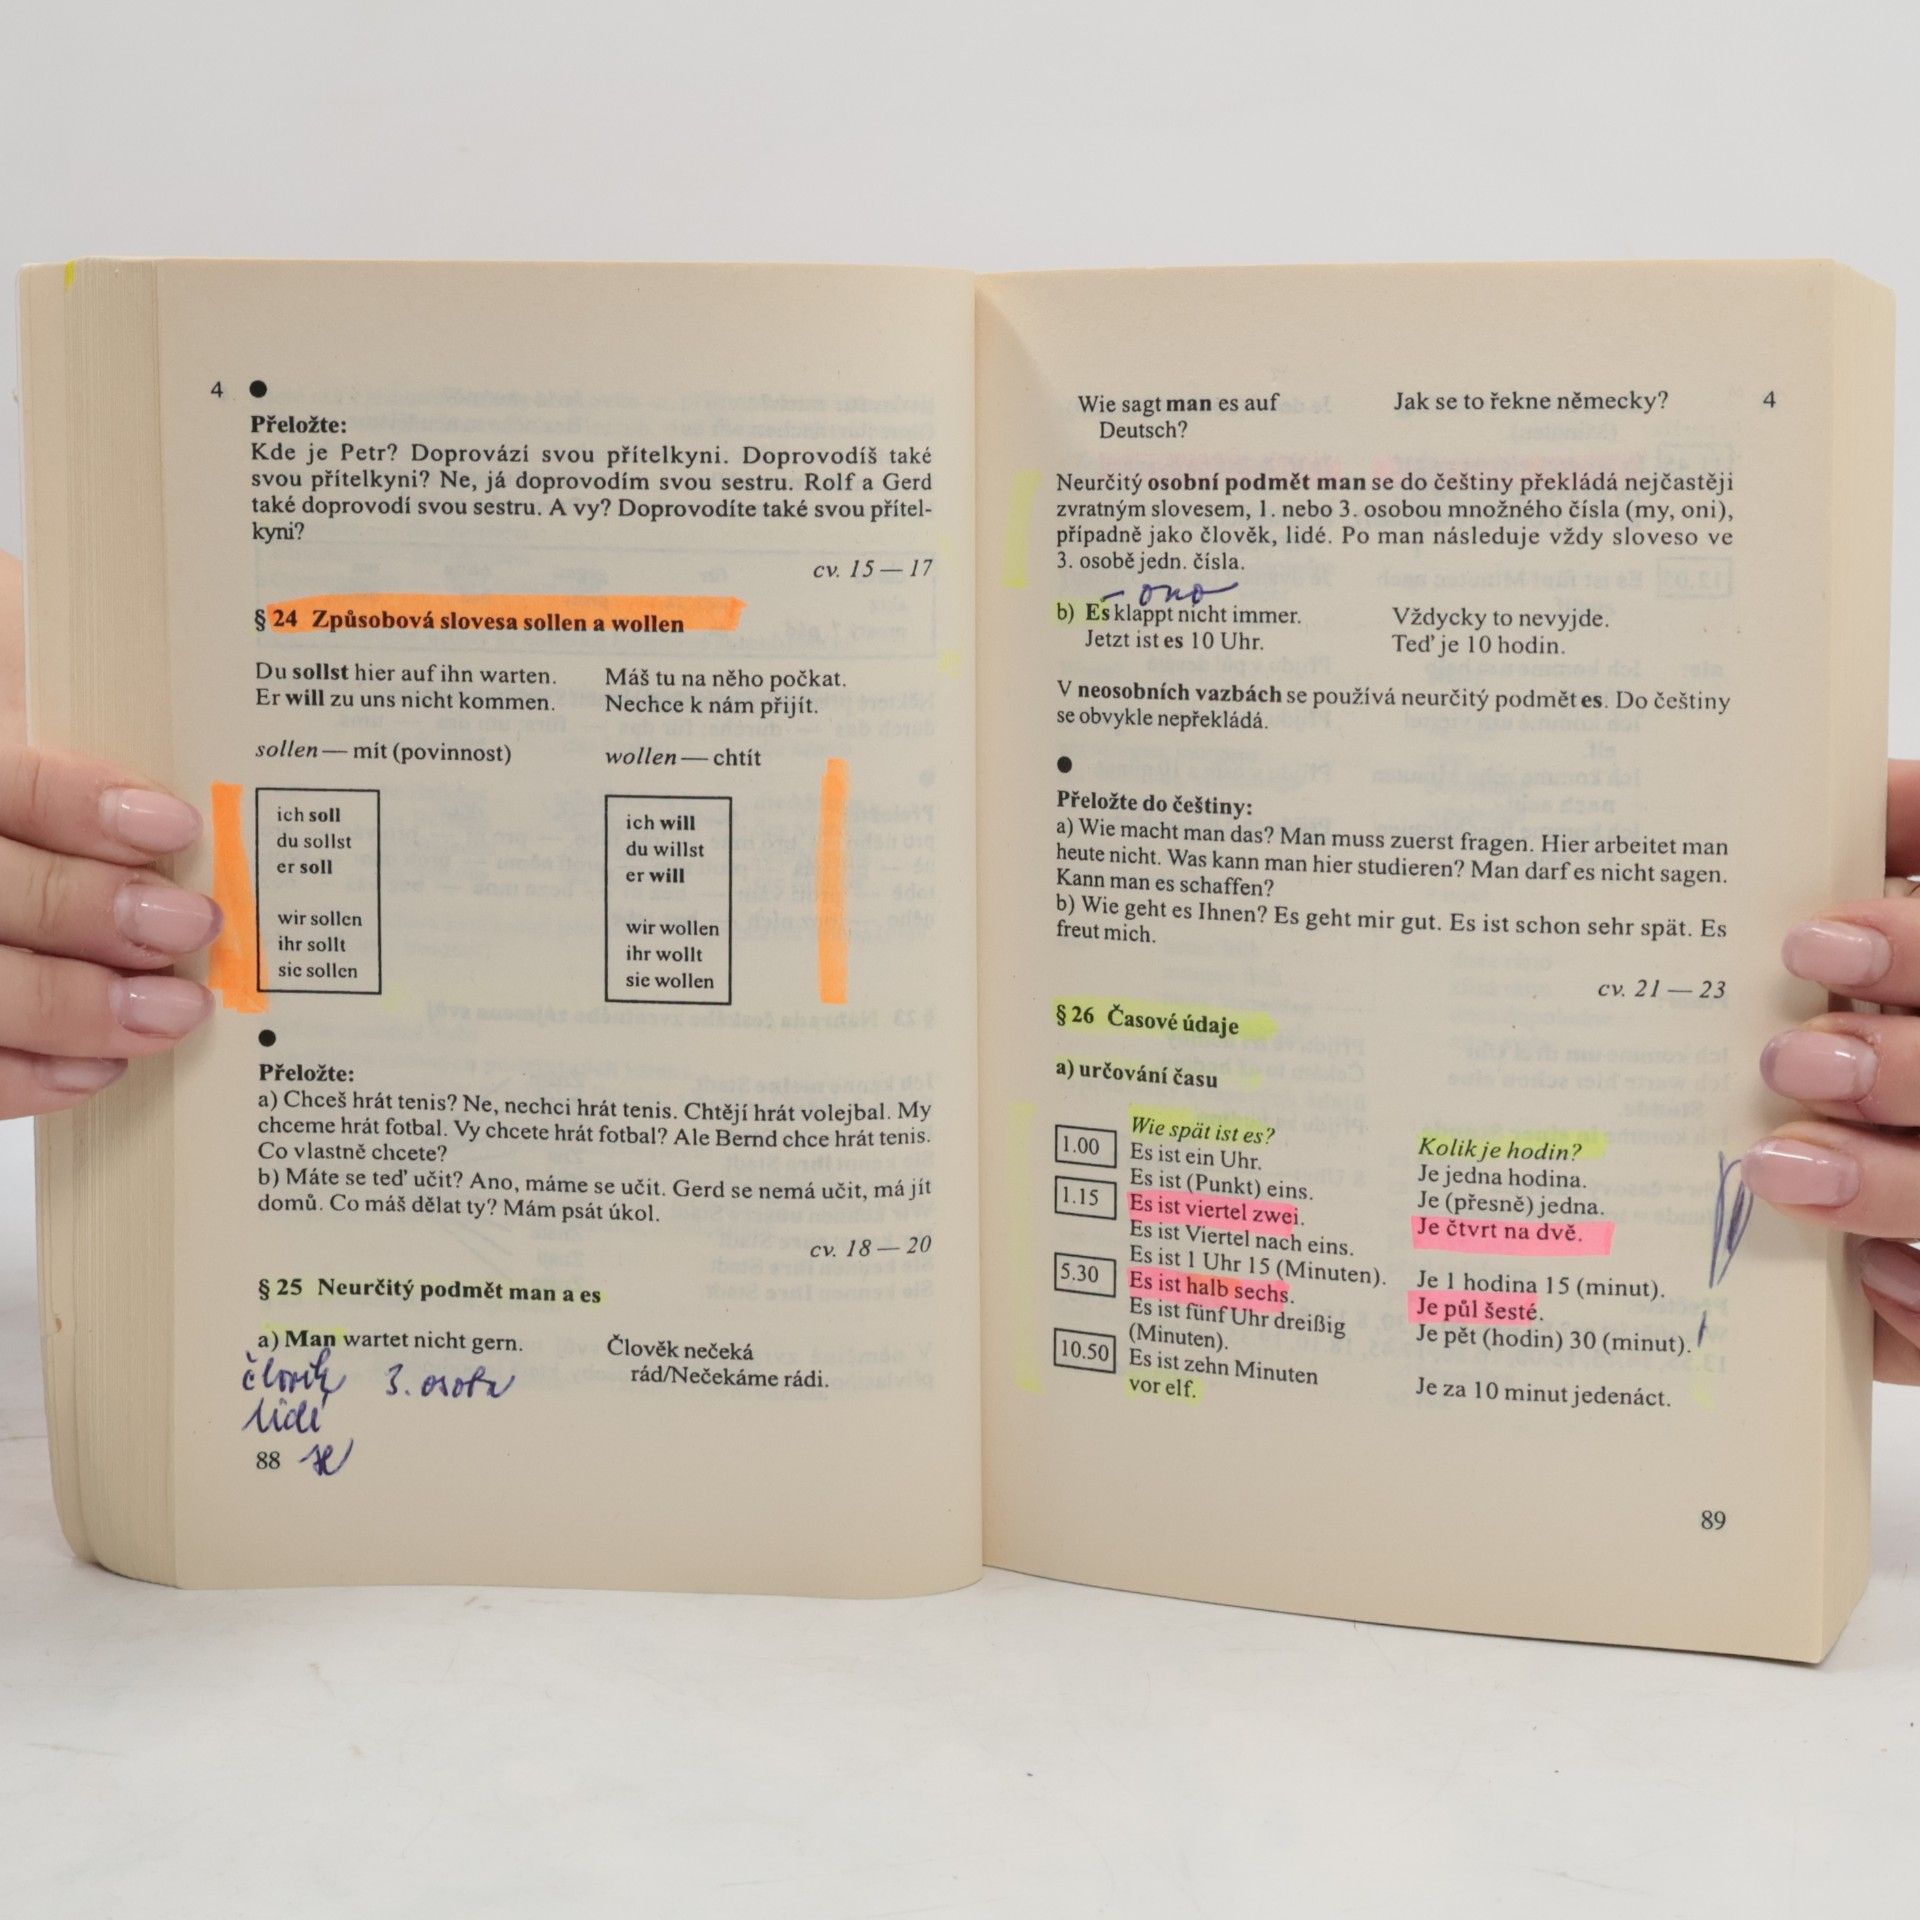 4 ●
Přeložte:
Kde je Petr? Doprovází svou přítelkyni. Doprovodíš také
svou přítelkyni? Ne, já doprovodím svou sestru. Rolf a Gerd
také doprovodí svou sestru. A vy? Doprovodíte také svou přítel-
kyni?
cv. 15 — 17
§ 24 Způsobová slovesa sollen a wollen
Du sollst hier auf ihn warten. Máš tu na něho počkat.
Er will zu uns nicht kommen. Nechce k nám přijít.
sollen — mít (povinnost) wollen — chtít
ich soll
du sollst
er soll
wir sollen
ihr sollt
sie sollen
ich will
du willst
er will
wir wollen
ihr wollt
sie wollen
●
Přeložte:
a) Chceš hrát tenis? Ne, nechci hrát tenis. Chtějí hrát volejbal. My
chceme hrát fotbal. Vy chcete hrát fotbal? Ale Bernd chce hrát tenis.
Co vlastně chcete?
b) Máte se teď učit? Ano, máme se učit. Gerd se nemá učit, má jít
domů. Co máš dělat ty? Mám psát úkol.
cv. 18 — 20
§ 25 Neurčitý podmět man a es
a) Man wartet nicht gern. Člověk nečeká
rád/Nečekáme rádi.
člověk 3. osoba
lidé
se
88
Wie sagt man es auf Jak se to řekne německy? 4
Deutsch?
Neurčitý osobní podmět man se do češtiny překládá nejčastěji
zvratným slovesem, 1. nebo 3. osobou množného čísla (my, oni),
případně jako člověk, lidé. Po man následuje vždy sloveso ve
3. osobě jedn. čísla.
– ono
b) Es klappt nicht immer. Vždycky to nevyjde.
Jetzt ist es 10 Uhr. Teď je 10 hodin.
V neosobních vazbách se používá neurčitý podmět es. Do češtiny
se obvykle nepřekládá.
●
Přeložte do češtiny:
a) Wie macht man das? Man muss zuerst fragen. Hier arbeitet man
heute nicht. Was kann man hier studieren? Man darf es nicht sagen.
Kann man es schaffen?
b) Wie geht es Ihnen? Es geht mir gut. Es ist schon sehr spät. Es
freut mich.
cv. 21 — 23
§ 26 Časové údaje
a) určování času
Wie spät ist es? Kolik je hodin?
1.00 Es ist ein Uhr. Je jedna hodina.
Es ist (Punkt) eins. Je (přesně) jedna.
1.15 Es ist viertel zwei. Je čtvrt na dvě.
Es ist Viertel nach eins.
Es ist 1 Uhr 15 (Minuten). Je 1 hodina 15 (minut).
5.30 Es ist halb sechs. Je půl šesté.
Es ist fünf Uhr dreißig Je pět (hodin) 30 (minut).
(Minuten).
10.50 Es ist zehn Minuten Je za 10 minut jedenáct.
vor elf.
89